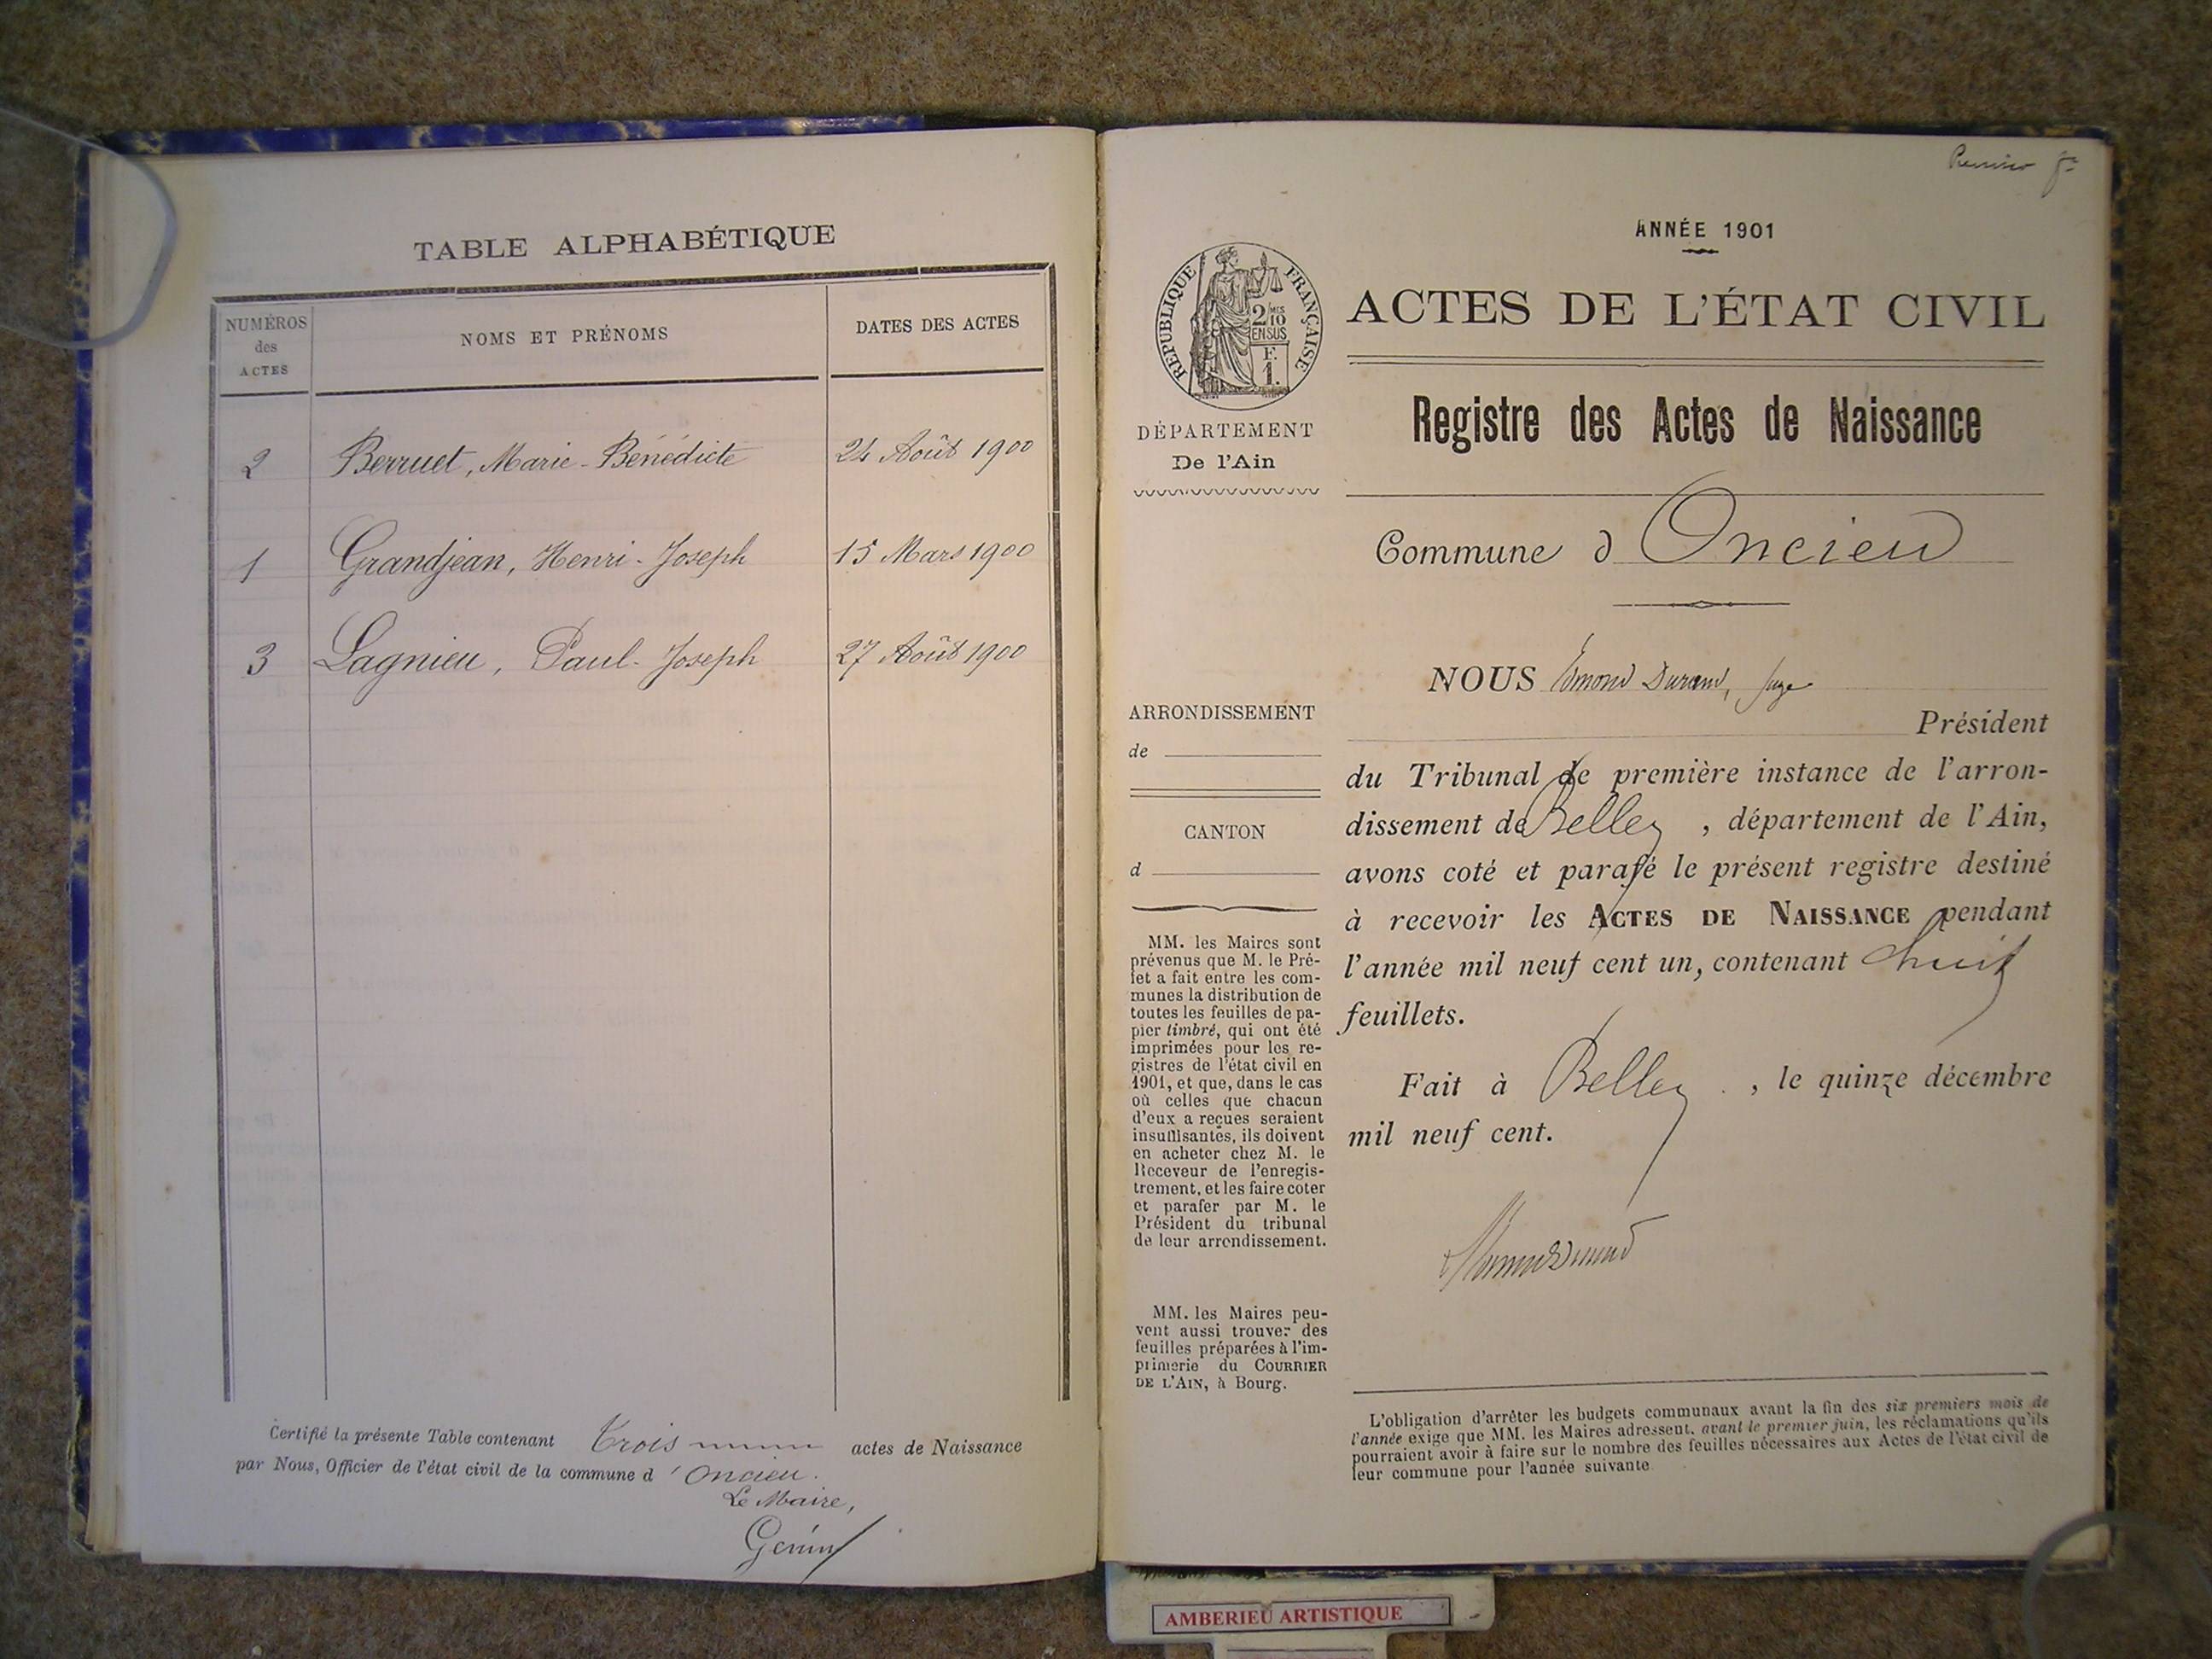 TABLE ALPHABÉTIQUE
NUMÉROS
des
ACTES
NOMS ET PRÉNOMS
DATES DES ACTES
2 Berruet, Marie-Bénédicte 24 Août 1900
1 Grandjean, Henri-Joseph 15 Mars 1900
3 Lagnieu, Paul-Joseph 27 Août 1900
Certifié la présente Table contenant trois actes de Naissance
par Nous, Officier de l'état civil de la commune d'Oncieu.
Le Maire,
Genin
Premier
ANNÉE 1901
RÉPUBLIQUE FRANÇAISE
2/10
MES
EN SUS
F.
1.
ACTES DE L'ÉTAT CIVIL
Registre des Actes de Naissance
DÉPARTEMENT
De l'Ain
Commune d Oncieu
NOUS Edmond Durand, Juge
Président
du Tribunal de première instance de l'arron-
dissement de Belley, département de l'Ain,
avons coté et parafé le présent registre destiné
à recevoir les ACTES DE NAISSANCE pendant
l'année mil neuf cent un, contenant huit
feuillets.
Fait à Belley, le quinze décembre
mil neuf cent.
ARRONDISSEMENT
de
CANTON
d
MM. les Maires sont
prévenus que M. le Pré-
fet a fait entre les com-
munes la distribution de
toutes les feuilles de pa-
pier timbré, qui ont été
imprimées pour les re-
gistres de l'état civil en
1901, et que, dans le cas
où celles que chacun
d'eux a reçues seraient
insuffisantes, ils doivent
en acheter chez M. le
Receveur de l'enregis-
trement, et les faire coter
et parafer par M. le
Président du tribunal
de leur arrondissement.
MM. les Maires peu-
vent aussi trouver des
feuilles préparées à l'im-
primerie du COURRIER
DE L'AIN, à Bourg.
L'obligation d'arrêter les budgets communaux avant la fin des six premiers mois de
l'année exige que MM. les Maires adressent, avant le premier juin, les réclamations qu'ils
pourraient avoir à faire sur le nombre des feuilles nécessaires aux Actes de l'état civil de
leur commune pour l'année suivante
AMBERIEU ARTISTIQUE